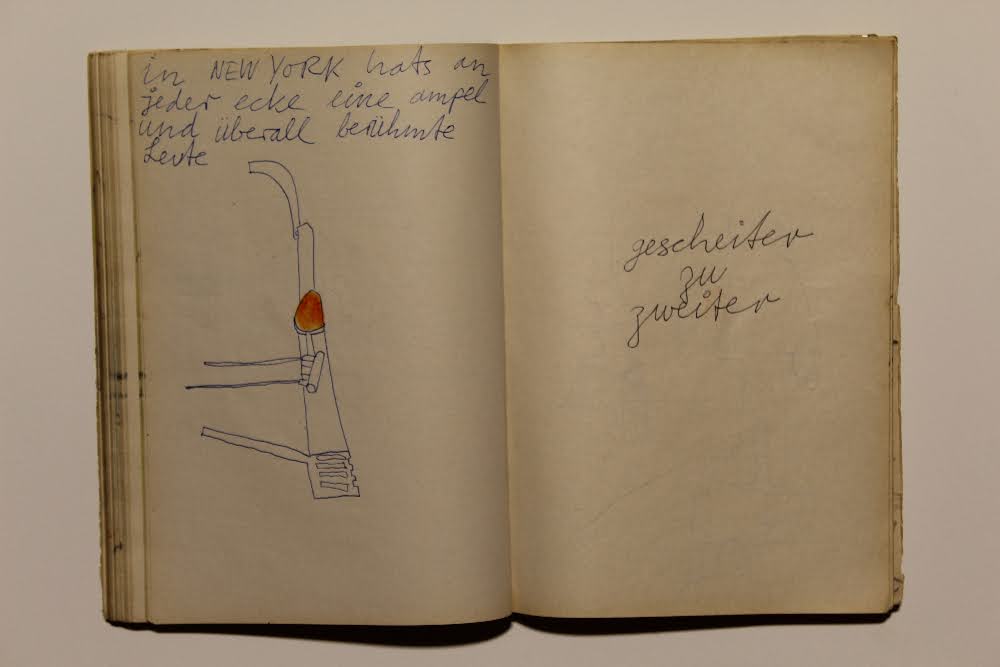 in NEW YORK hats an
jeder ecke eine ampel
und überall berühmte
Leute
gescheiter
zu
zweiter